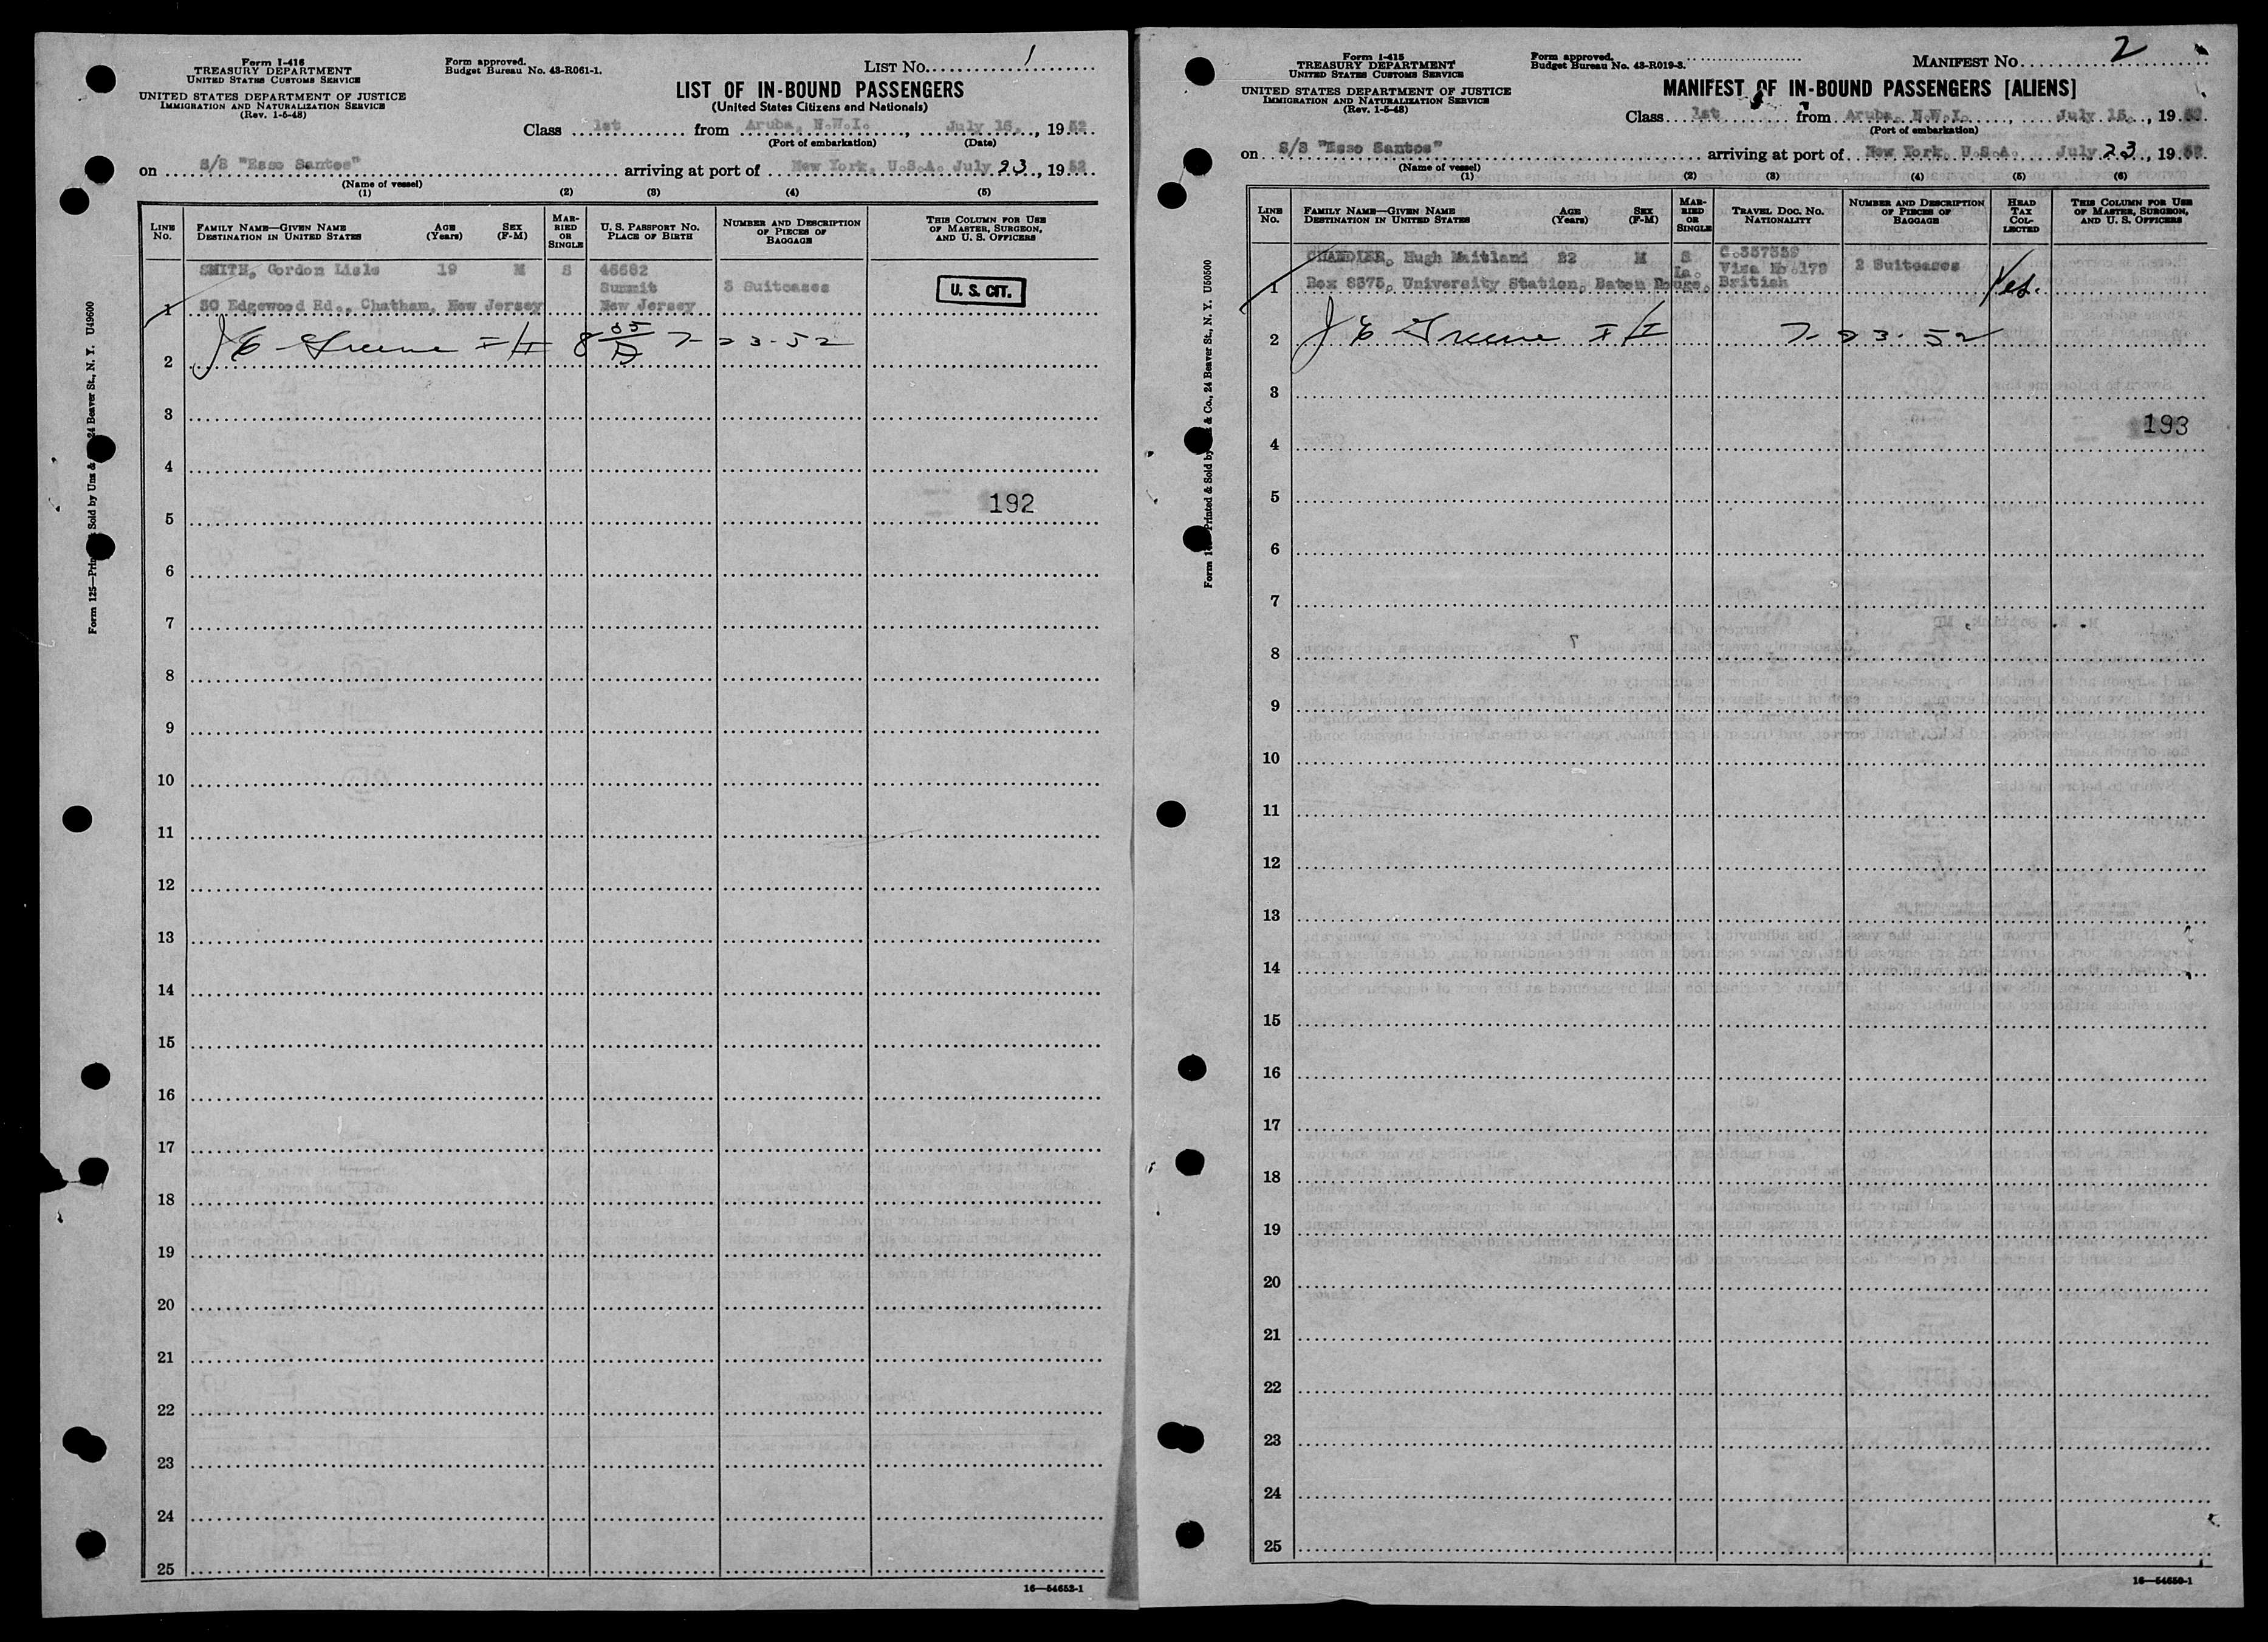 Form I-416
TREASURY DEPARTMENT
UNITED STATES CUSTOMS SERVICE
UNITED STATES DEPARTMENT OF JUSTICE
IMMIGRATION AND NATURALIZATION SERVICE
(Rev. 1-5-48)
Form approved.
Budget Bureau No. 43-R061-1.
LIST NO. 1
LIST OF IN-BOUND PASSENGERS
(United States Citizens and Nationals)
Class 1st from Aruba, N.W.I., July 16, 1952
(Port of embarkation) (Date)
on S/S "Esso Santos" arriving at port of New York, U.S.A. July 23, 1952
(Name of vessel)
(1) (2) (3) (4) (5)
LINE NO.
FAMILY NAME—GIVEN NAME
DESTINATION IN UNITED STATES
AGE (Years)
SEX (F-M)
MARRIED OR SINGLE
U. S. PASSPORT NO.
PLACE OF BIRTH
NUMBER AND DESCRIPTION OF PIECES OF BAGGAGE
THIS COLUMN FOR USE OF MASTER, SURGEON, AND U. S. OFFICERS
SMITH, Gordon Lisle 19 M S 46682
Summit 3 Suitcases U. S. CIT.
1 30 Edgewood Rd., Chatham, New Jersey New Jersey
J E Greene 7-23-52
2
3
4
192
5
6
7
8
9
10
11
12
13
14
15
16
17
18
19
20
21
22
23
24
25
16—54652-1
Form 125—
Sold by Unz &
24 Beaver St., N. Y. U49600
Form I-415
TREASURY DEPARTMENT
UNITED STATES CUSTOMS SERVICE
UNITED STATES DEPARTMENT OF JUSTICE
IMMIGRATION AND NATURALIZATION SERVICE
(Rev. 1-5-48)
Form approved.
Budget Bureau No. 43-R019-3.
MANIFEST NO. 2
MANIFEST OF IN-BOUND PASSENGERS [ALIENS]
Class 1st from Aruba, N.W.I., July 15, 1952
(Port of embarkation)
on S/S "Esso Santos" arriving at port of New York, U.S.A. July 23, 1952
(Name of vessel)
(1) (2) (3) (4) (5) (6)
LINE NO.
FAMILY NAME—GIVEN NAME
DESTINATION IN UNITED STATES
AGE (Years)
SEX (F-M)
MARRIED OR SINGLE
TRAVEL DOC. NO.
NATIONALITY
NUMBER AND DESCRIPTION OF PIECES OF BAGGAGE
HEAD TAX COLLECTED
THIS COLUMN FOR USE OF MASTER, SURGEON, AND U. S. OFFICERS
CHANDLER, Hugh Maitland 22 M S C.357559
Visa No.179 2 Suitcases
1 Box 8375, University Station, Baton Rouge, La. British Yes.
2 J E Greene 7-23-52
3
193
4
5
6
7
8
9
10
11
12
13
14
15
16
17
18
19
20
21
22
23
24
25
16—54650-1
Printed & Sold by
& Co., 24 Beaver St., N. Y. U50500